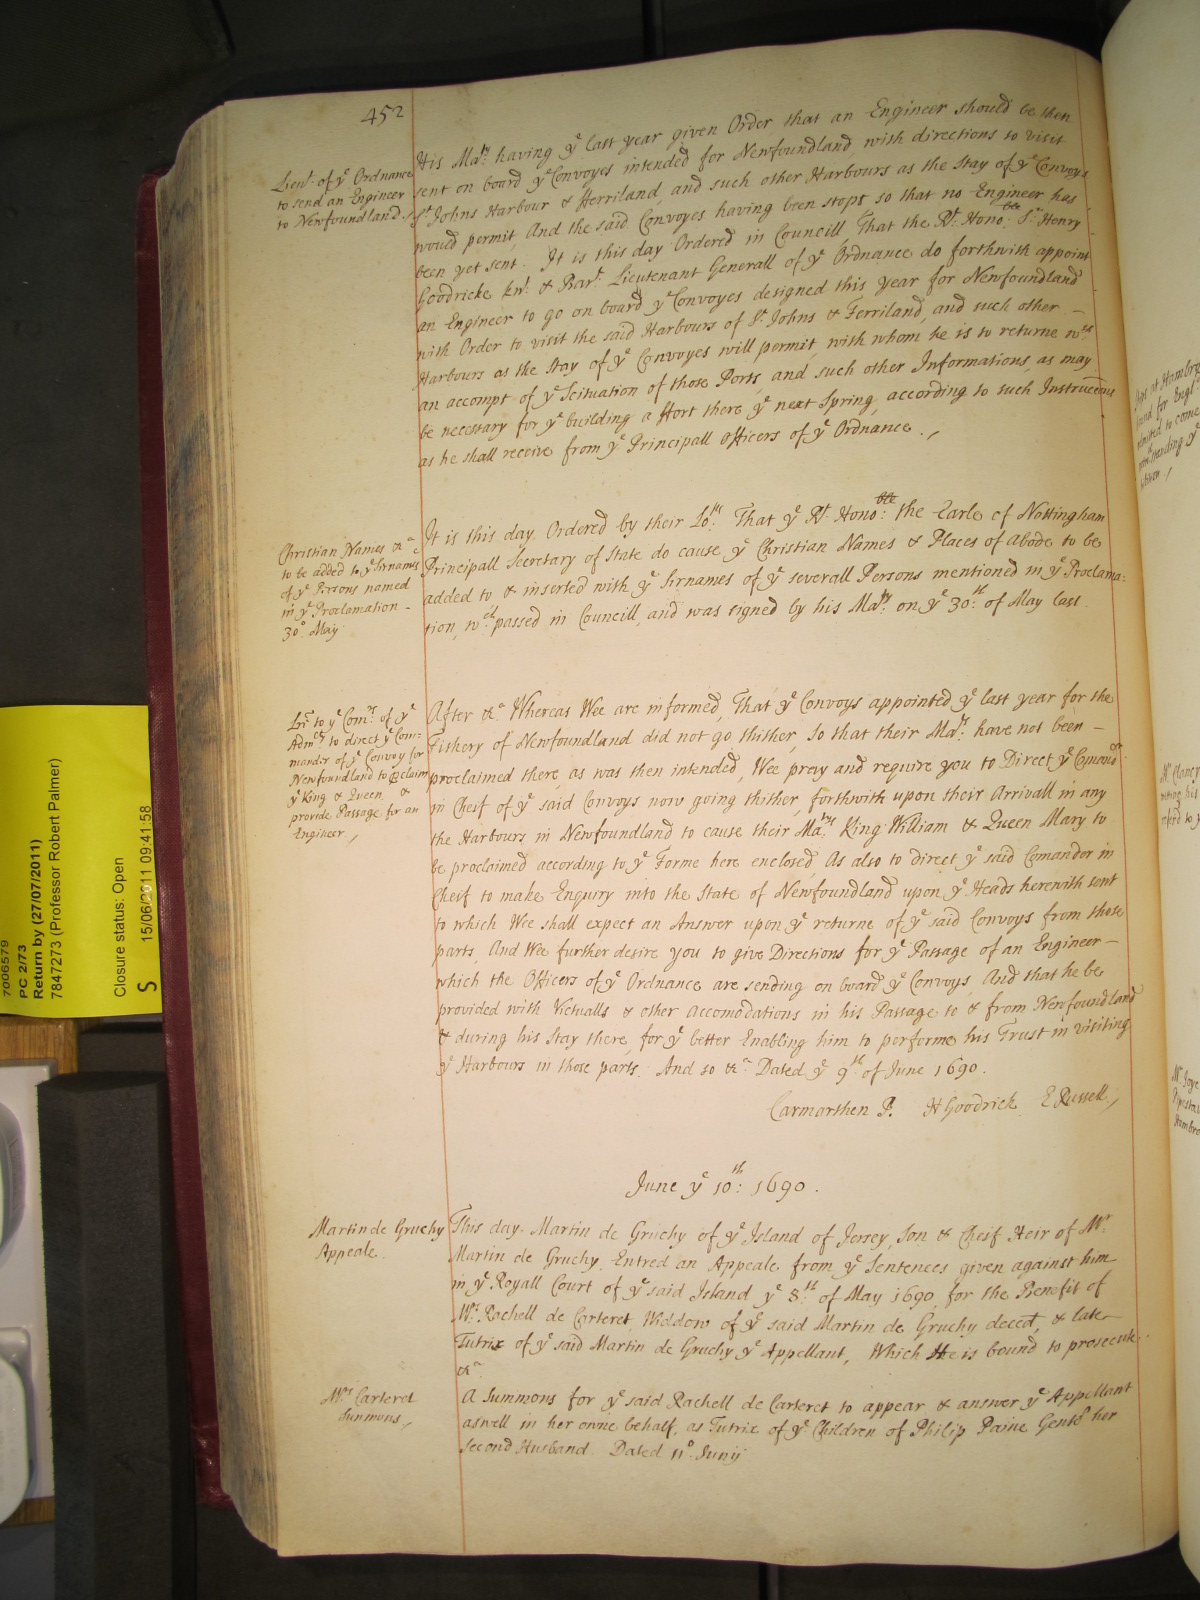 452
Lieut. of ye Ordnance
to send an Engineer
to Newfoundland.
His Maty. having ye last year given Order, that an Engineer should be then
sent on board ye Convoyes intended for Newfoundland with directions to visit
St. Johns Harbour & Herriland, and such other Harbours as the Stay of ye Convoys
would permit, And the said Convoyes having been stopt so that no Engineer has
been yet sent. It is this day Ordered in Councill, That the Rt. Honoble: Sr. Henry
Goodricke Knt. & Bart. Lieutenant Generall of ye Ordnance do forthwith appoint
an Engineer to go on board ye Convoyes designed this year for Newfoundland
with Order to visit the said Harbours of St. Johns & Ferriland, and such other -
Harbours as the Stay of ye Convoyes will permit, with whom he is to returne wth
an accompt of ye Scituation of those Ports, and such other Informations, as may
be necessary for ye building a ffort there ye next Spring, according to such Instruccons
as he shall receive from ye Principall officers of ye Ordnance.,
Christian Names &ca
to be added to ye Sirnames
of ye Persons named
in ye Proclamation -
30o. May
It is this day Ordered by their Lops. That ye Rt. Honoble: the Earle of Nottingham
Principall Secretary of State do cause ye Christian Names & Places of Abode to be
added to & inserted with ye Sirnames of ye severall Persons mentioned in ye Proclama:
tion, wch passed in Councill, and was signed by his Maty. on ye 30th: of May last.
Lre to ye Comrs. of ye
Admty to direct ye Com=
mander of ye Convoy for
Newfoundland to proclaim
ye King & Queen &
provide Passage for an
Engineer.,
After &ca Whereas Wee are informed, That ye Convoys appointed ye last year for the
Fishery of Newfoundland did not go thither, So that their Matys. have not been -
proclaimed there as was then intended, Wee pray and require you to Direct ye Comandr
in Cheif of ye said Convoys now going thither, forthwith upon their Arrivall in any
the Harbours in Newfoundland to cause their Matys. King William & Queen Mary to
be proclaimed according to ye Forme here enclosed As also to direct ye said Comander in
Cheif to make Enqury into the State of Newfoundland upon ye Heads herewith sent
to which Wee shall expect an Answer upon ye returne of ye said Convoys from those
parts, And Wee further desire you to give Directions for ye Passage of an Engineer -
which the Officers of ye Ordnance are sending on board ye Convoys, And that he be
provided with Victualls & other Accomodations in his Passage to & from Newfoundland
& during his Stay there, for ye better Enabling him to performe his Trust in visiting
ye Harbours in those parts. And so &ca Dated ye 9th: of June 1690.
Carmarthen P. H Goodrick E Russell.,
June ye 10th: 1690.
Martin de Gruchy
Appeale.
This day Martin de Gruchy of ye Island of Jersey, Son & Cheif Heir of Mr.
Martin de Gruchy, Entred an Appeale from ye Sentences given against him
in ye Royall Court of ye said Island ye 8th: of May 1690, for the Benefit of
Mrs. Rachell de Carteret Widdow of ye said Martin de Gruchy deced, & late
Tutrix of ye said Martin de Gruchy ye Appellant, Which He is bound to prosecute
&ca
Mrs Carteret
Summons.,
A Summons for ye said Rachell de Carteret to appear & answer ye Appellant
aswell in her owne behalf, as Tutrix of ye Children of Philip Paine Gentō her
second Husband. Dated 11o. Junij
7006579
PC 2/73
Return by (27/07/2011)
7847273 (Professor Robert Palmer)
Closure status: Open
S 15/06/2011 09:41:58